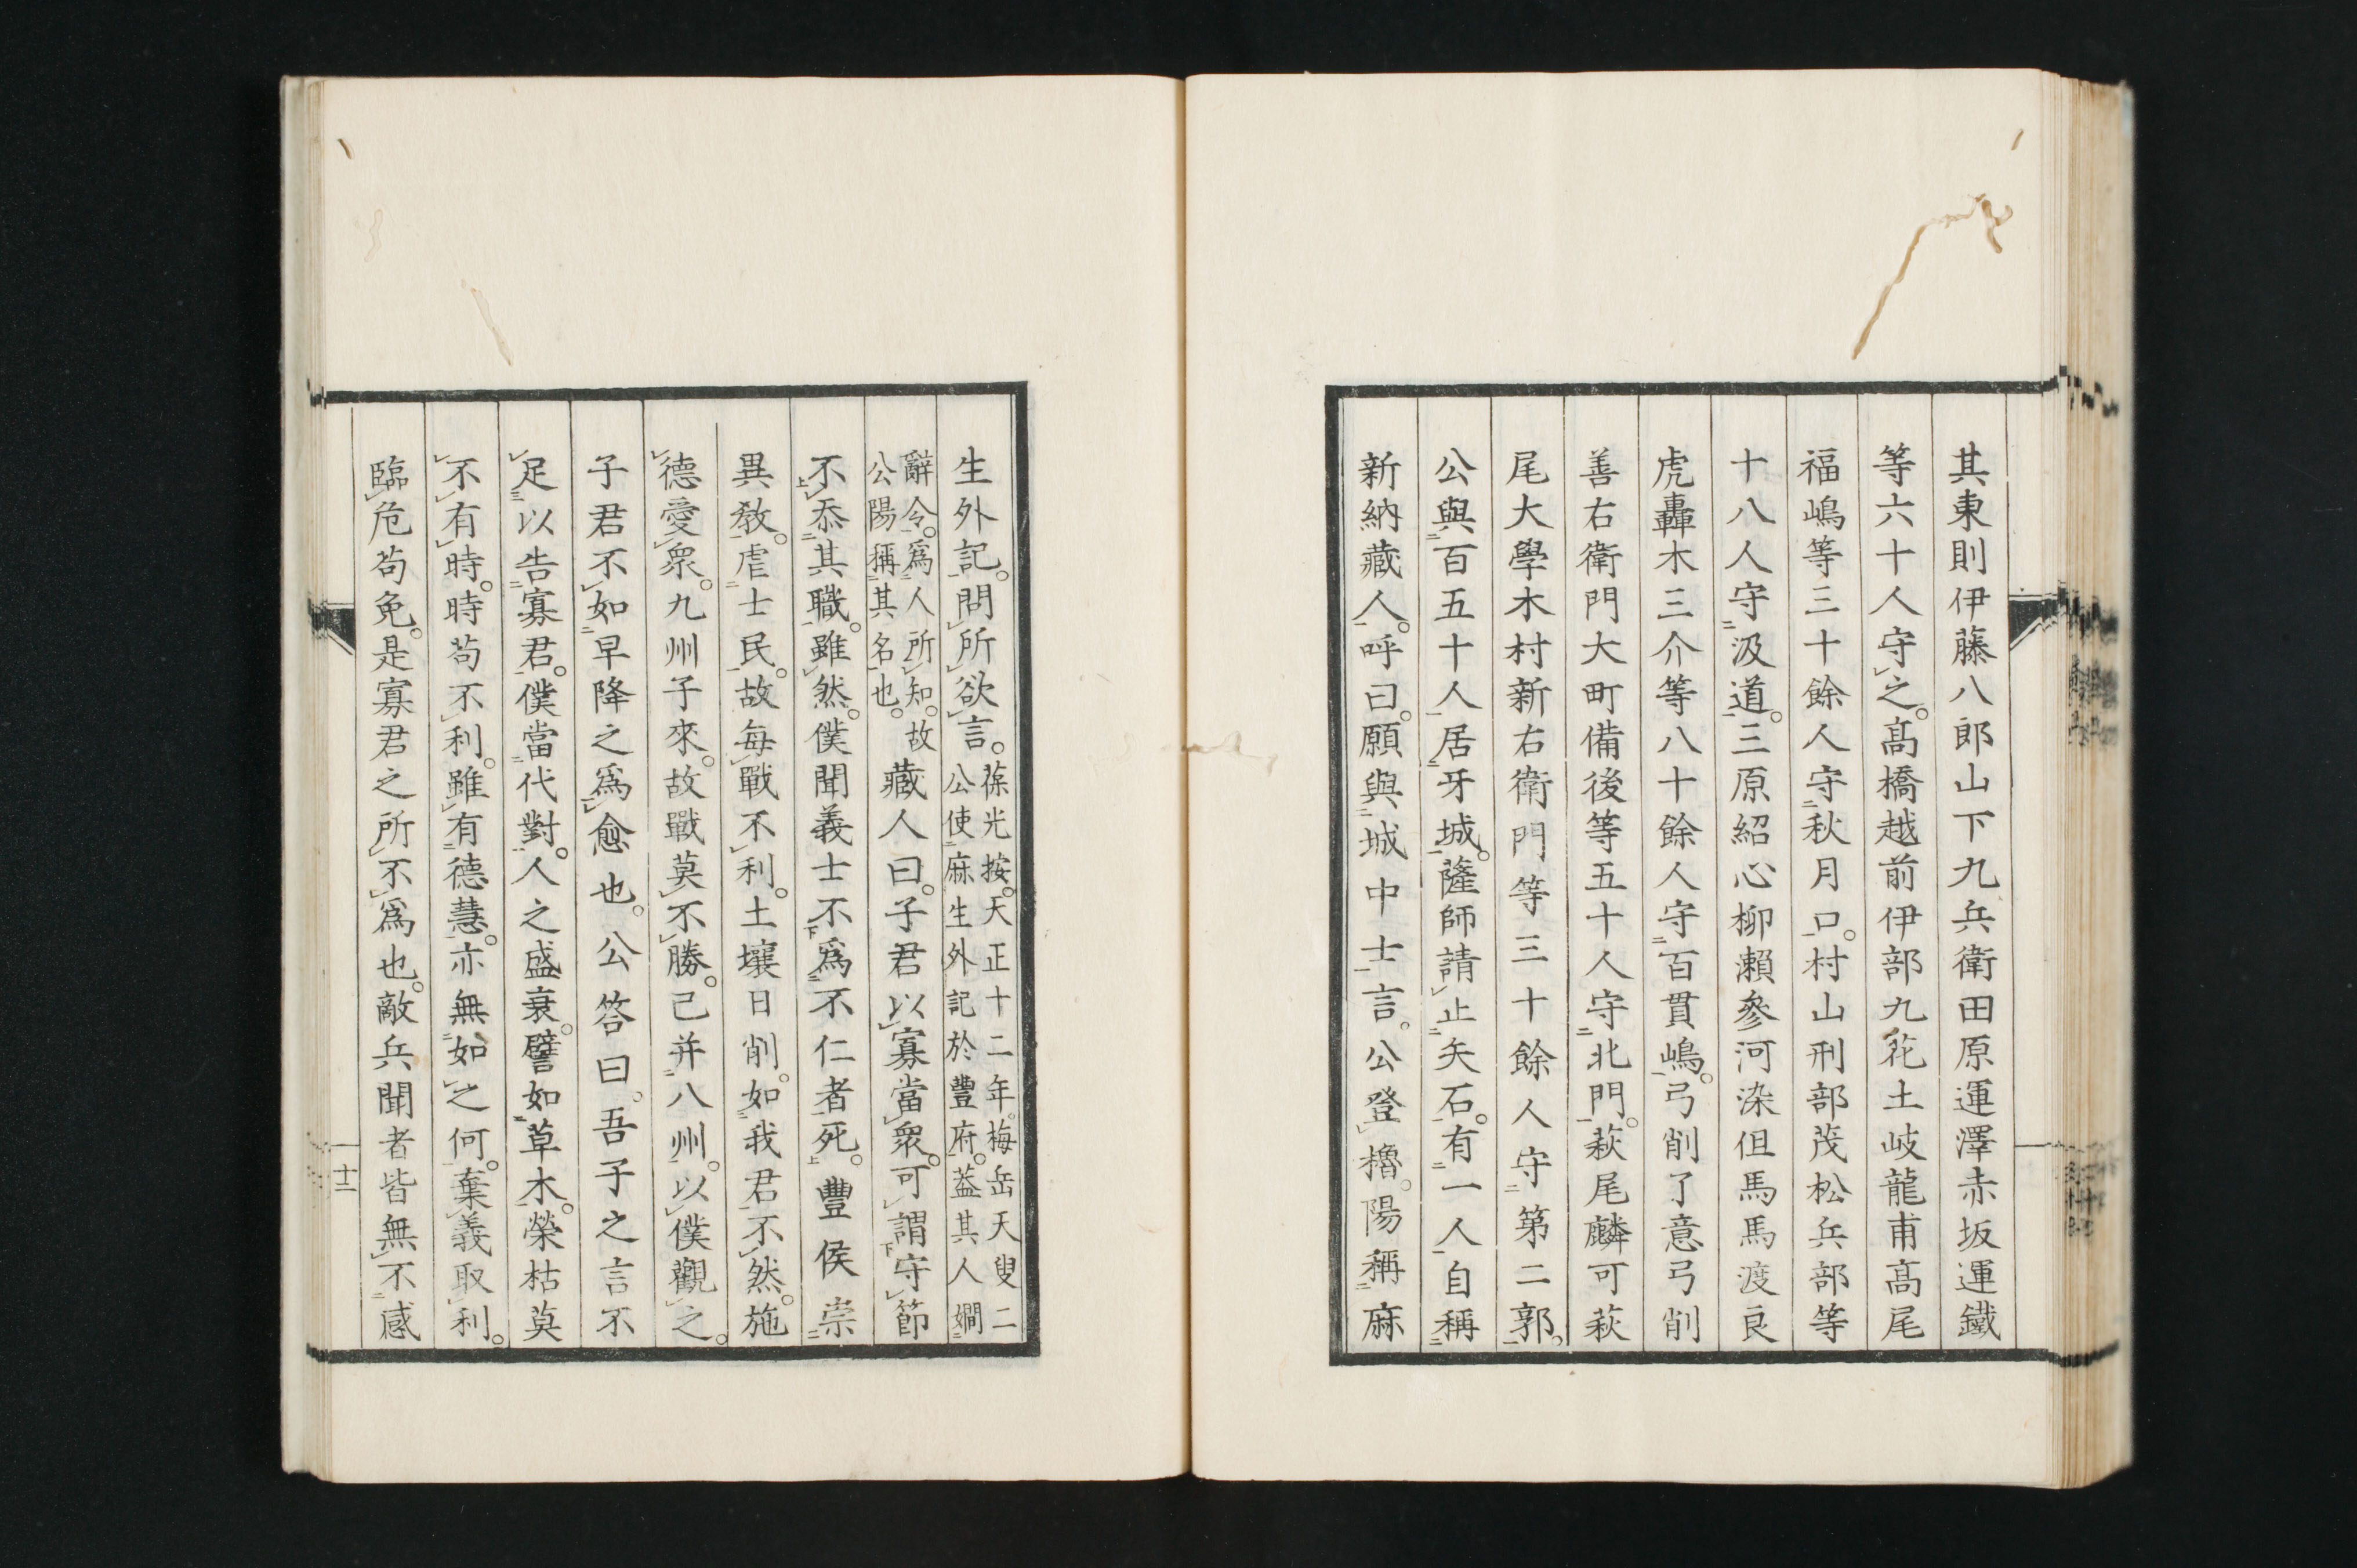 其東則伊藤八郎山下九兵衛田原運澤赤坂運鐵
等六十人守之。高橋越前伊部九花土岐龍甫高尾
福嶋等三十餘人守秋月口。村山刑部茂松兵部等
十八人守汲道。三原紹心柳瀨參河染但馬馬渡良
虎轟木三介等八十餘人守百貫嶋。弓削了意弓削
善右衛門大町備後等五十人守北門。萩尾麟可萩
尾大學木村新右衛門等三十餘人守第二郭。
公與百五十人居牙城。薩師請止矢石。有一人自稱
新納藏人。呼曰。願與城中士言。公登櫓。陽稱麻
生外記。問所欲言。葆光按。天正十二年。梅岳天叟二
公使麻生外記於豐府。葢其人嫺
辭令。爲人所知。故
公陽稱其名也。藏人曰。子君以寡當衆。可謂守節
不忝其職。雖然。僕聞義士不爲不仁者死。豐侯崇
異教。虐士民。故每戰不利。土壤日削。如我君不然。施
德愛衆。九州子來。故戰莫不勝。已并八州。以僕觀之。
子君不如早降之爲愈也。公答曰。吾子之言不
足以告寡君。僕當代對。人之盛衰。譬如草木。榮枯莫
不有時。時苟不利。雖有德慧。亦無如之何。棄義取利。
臨危苟免。是寡君之所不爲也。敵兵聞者皆無不感
十二